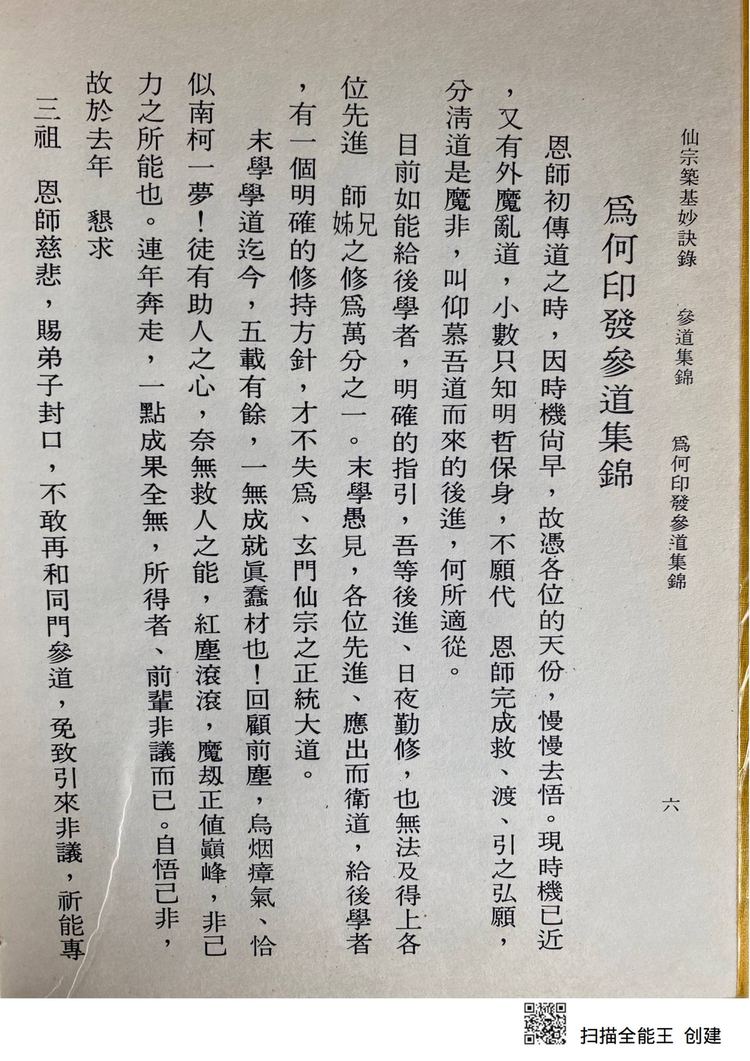 仙宗築基妙訣錄　參道集錦　爲何印發參道集錦　六
爲何印發參道集錦
恩師初傳道之時，因時機尙早，故憑各位的天份，慢慢去悟。現時機已近
，又有外魔亂道，小數只知明哲保身，不願代　恩師完成救、渡、引之弘願，
分淸道是魔非，叫仰慕吾道而來的後進，何所適從。
目前如能給後學者，明確的指引，吾等後進、日夜勤修，也無法及得上各
位先進　師兄姊之修爲萬分之一。末學愚見，各位先進、應出而衛道，給後學者
，有一個明確的修持方針，才不失爲、玄門仙宗之正統大道。
末學學道迄今，五載有餘，一無成就眞蠢材也！回顧前塵，烏烟瘴氣、恰
似南柯一夢！徒有助人之心，奈無救人之能，紅塵滾滾，魔刼正値巔峰，非己
力之所能也。連年奔走，一點成果全無，所得者、前輩非議而已。自悟己非，
故於去年　懇求
三祖　恩師慈悲，賜弟子封口，不敢再和同門參道，免致引來非議，祈能專
扫描全能王 创建